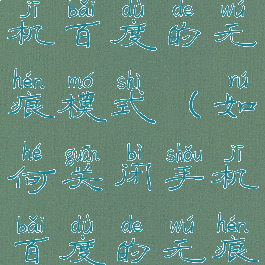 jī bǎi dù de wú
机百度的无
hén mó shì rú
痕模式(如
hé guān bì shǒu jī
何关闭手机
bǎi dù de wú hén
百度的无痕